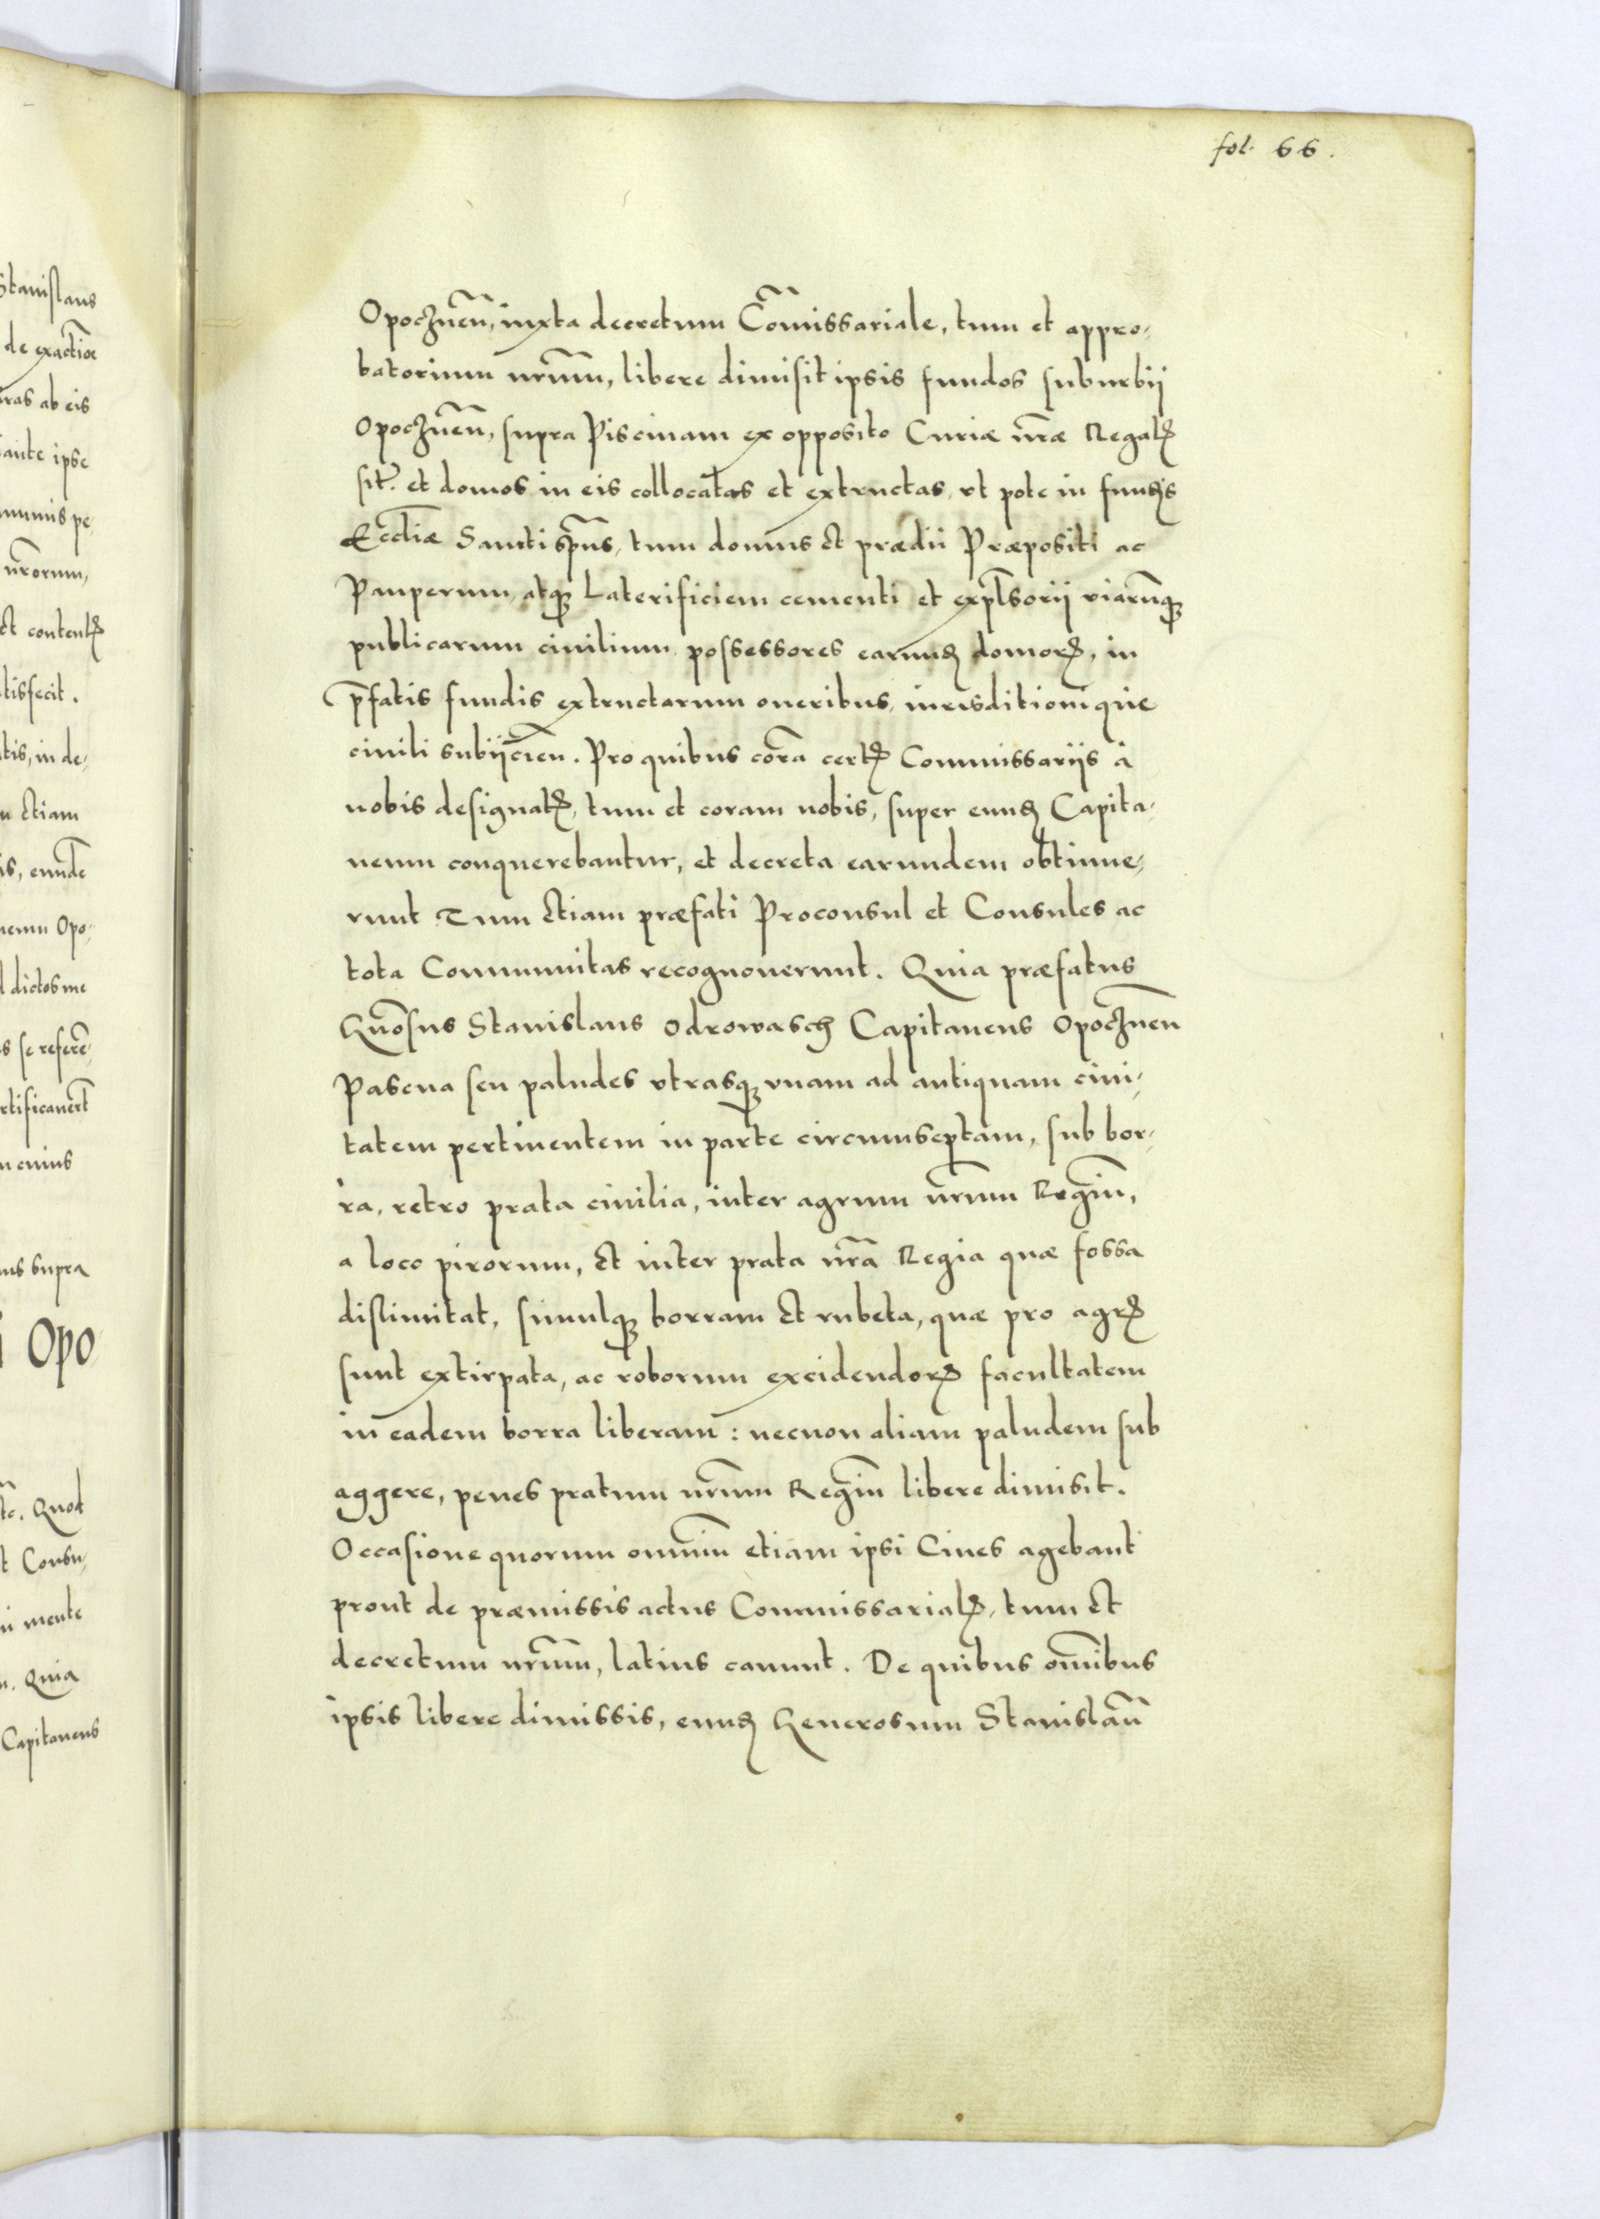 fol. 66.
Opocznen̄, iuxta decretum Cōmissariale, tum et appro-
batorium nr̄um, libere dimisit ipsis fundos suburbii
Opocznen̄, supra Piscinam ex opposito Curiæ nr̄æ Regalꝭ
sit̄. et domos in eis collocatas et extructas, vt pote in fundis
Eccl̄iæ Sancti sp̄ūs, tum domus et prædii Præpositi ac
Pauperum, atqꝫ Laterificiem cementi et viarūqꝫ
publicarum ciuilium possessores earundꝫ domorꝝ, in
p̄fatis fundis extructarum oneribus, iurisditioniqúe
ciuili subiicien̄. Pro quibus corā certꝭ Commissariis â
nobis designatꝭ, tum et coram nobis, super eundꝫ Capita-
neum conquerebantur, et decreta earundem obtinue-
runt Tum etiam præfati Proconsul et Consules ac
tota Communitas recognouerunt. Quia præfatus
Gn̄osus Stanislaus Odrowasch Capitaneus Opocznen̄
Pascua seu paludes vtrasqꝫ vnam ad antiquam ciui-
tatem pertinentem in parte circumseptam, sub bor-
ra, retro prata ciuilia, inter agrum nr̄um Regiū,
a loco pirorum, et inter prata nr̄a Regia quæ fossa
dislimitat, simulqꝫ borram et rubeta, quæ pro agrꝭ
sunt extirpata, ac roborum excidendorꝝ facultatem
in eadem borra liberam: necnon aliam paludem sub
aggere, penes pratum nr̄um Regiū libere dimisit.
Occasione quorum omniū etiam ipsi Ciues agebant
prout de præmissis actus Commissarialꝭ, tum et
decretum nr̄um, latius canunt. De quibus om̄ibus
ipsis libere dimissis, eundꝫ Generosum Stanislaū